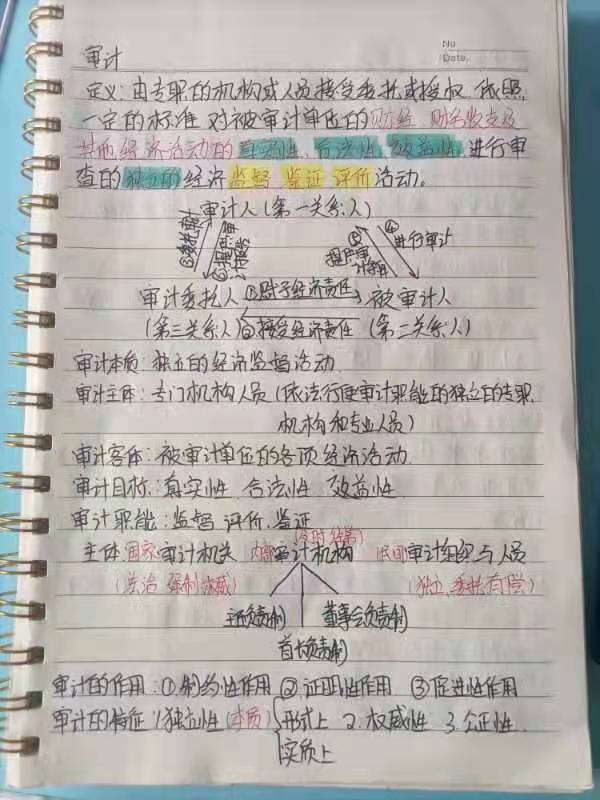 No
Date.
审计
定义：由专职的机构或人员接受委托或授权 依照
一定的标准 对被审计单位的财经、财务收支及
其他经济活动的真实性、合法性、效益性 进行审
查的独立的经济监督 鉴证 评价活动。
审计人（第一关系人）
③委托审计
⑥提严审计报告
⑤提严审计报告
④进行审计
审计委托人 ①赋予经济责任 被审计人
（第三关系人） ②接受经济责任 （第二关系人）
审计本质：独立的经济监督活动
审计主体：专门机构人员（依法行使审计职能的独立的专职
机构和专业人员）
审计客体：被审计单位的各项经济活动
审计目标：真实性 合法性 效益性
审计职能：监督 评价 鉴证
主体：国家审计机关 内部审计机构 民间审计组织与人员
（法治 强制 权威） （独立、委托、有偿）
董事会负责制
首长负责制
审计的作用：①制约性作用 ②证明性作用 ③促进性作用
审计的特征 1独立性（本质） 形式上 2.权威性 3.公证性
实质上